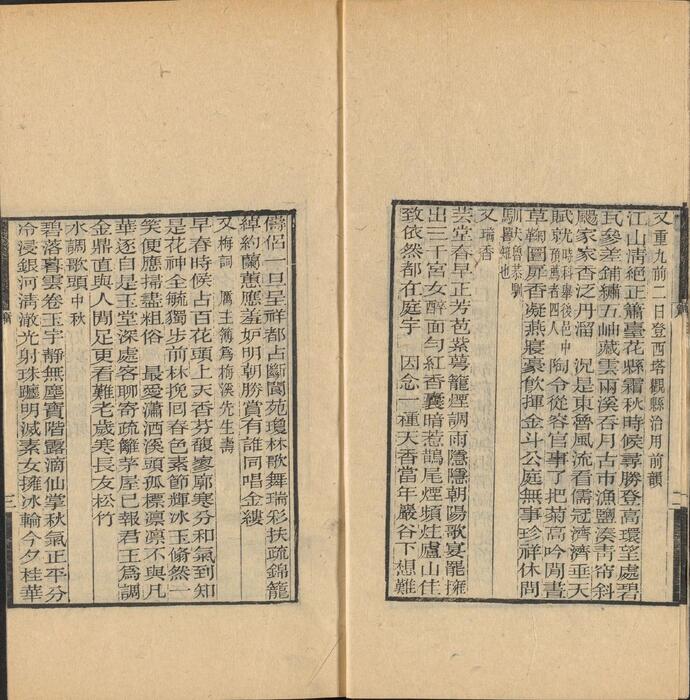 又重九前二日登西塔觀縣治用前韻
江山淸絶正蕭臺花縣霜秋時候尋勝登高環望處碧
瓦參差鋪繡五岫藏雲兩溪吞月古市漁鹽湊靑帘斜
颺家家香泛丹溜　況是東魯風流看儒冠濟濟垂天
賦就時科舉後邑中預薦者四人陶令從容官事了把菊高吟閒晝
草鞠圄扉香凝燕寢豪飮揮金斗公庭無事珍祥休問
馴魯恭馴也
又瑞香
芸堂春早正芳苞紫萼籠煙調雨隱隱朝陽歌宴罷擁
出三千宮女醉面勻紅香囊暗惹鵲尾煙頻炷盧山佳
致依然都在庭宇　因念一種天香當年巖谷下想難
儔侶一旦呈祥都占斷閬苑瓊林歌舞瑞彩扶疏錦籠
綽約蘭蕙應羞妒明朝勝賞有誰同唱金縷
又梅詞　厲主簿爲梅溪先生壽
早春時候占百花頭上天香芬馥寥廓寒分和氣到知
是花神全毓獨步前林挽回春色素節輝冰玉翛然一
笑便應掃盡粗俗　最愛瀟洒溪頭孤標凛凛不與凡
華逐自是玉堂深處客聊寄疏籬茅屋已報君王爲調
金鼎直與人閒足更看難老歲寒長友松竹
水調歌頭中秋
碧落暮雲卷玉宇靜無塵寶階露滴仙掌秋氣正平分
冷浸銀河淸澈光射珠躔明滅素女擁冰輪今夕桂華
三